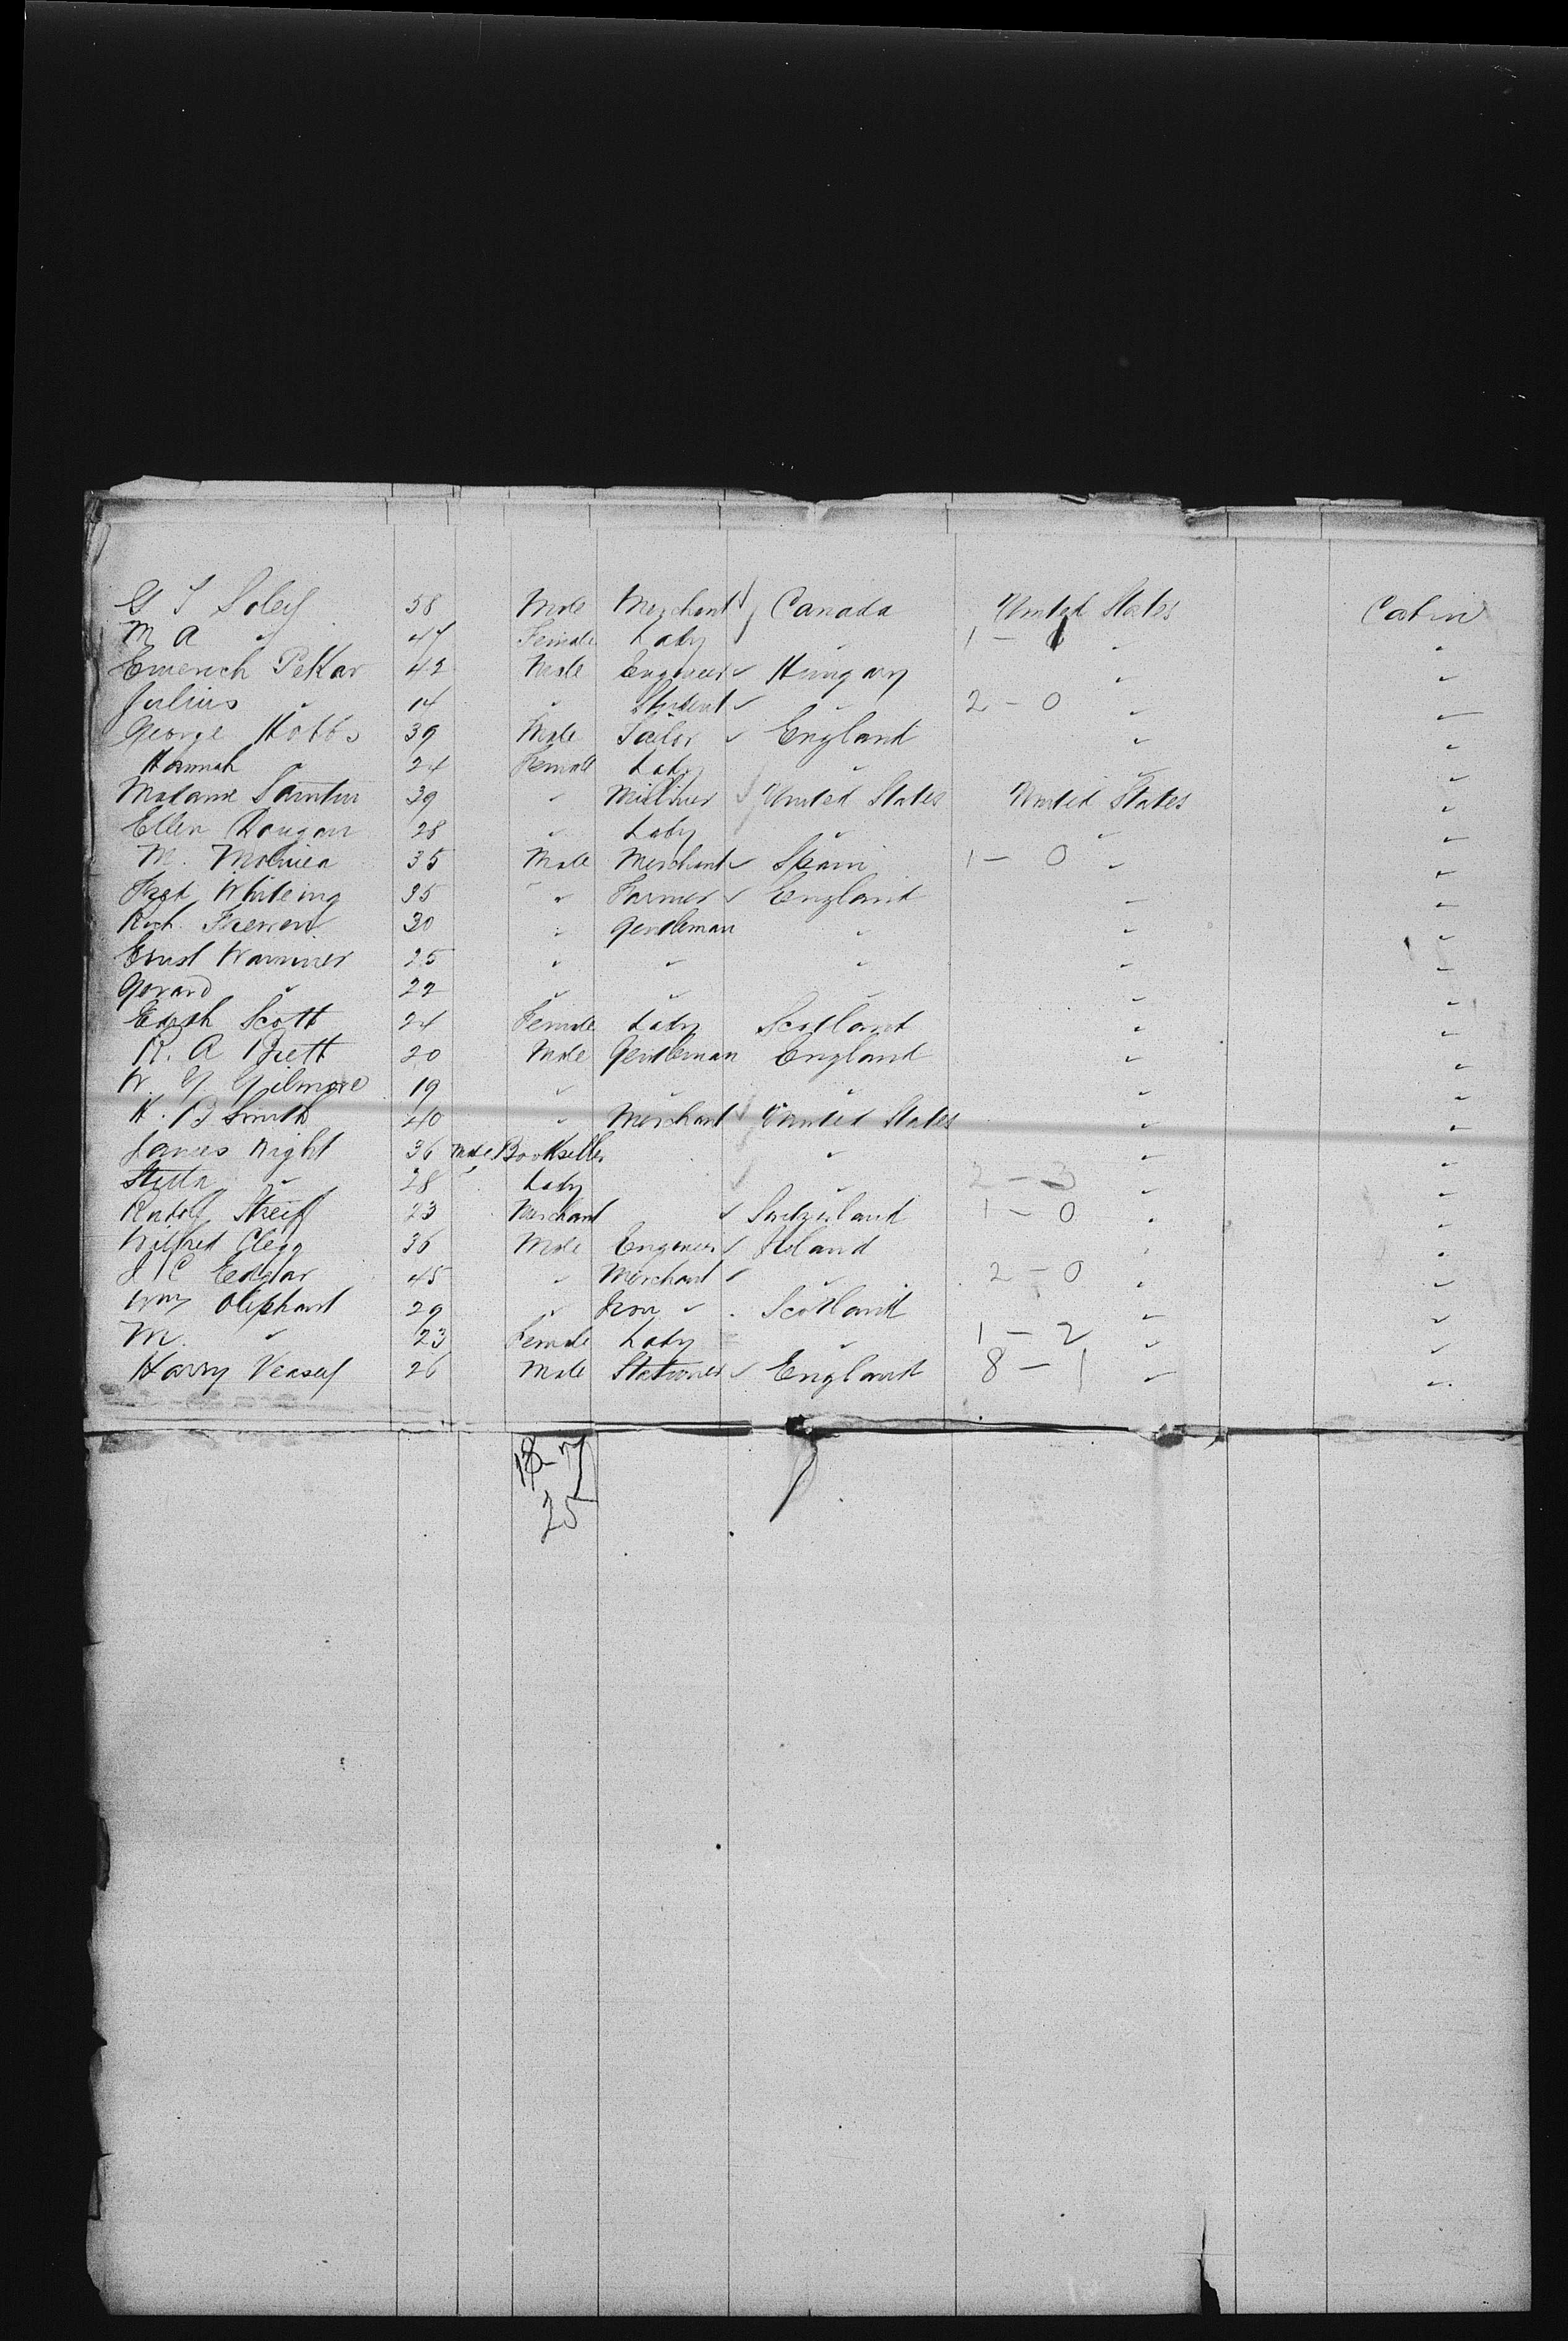 G T Soley 58 Male Merchant Canada United States Cabin
M A " 47 Female Lady " 1 - 1 " "
Emerich Pekar 42 Male Engineer Hungary " "
Julius " 14 " Student " 2 - 0 " "
George Hobbs 39 Male Tailor England " "
Hannah " 24 Female Lady " " "
Madame 39 " Milliner United States United States "
Ellen Dougan 28 " Lady " " "
M. Molnien 35 Male Merchant Spain 1 - 0 " "
Fred Whiteing 35 " Farmer England " "
Rich. Frewen 30 " Gentleman " " "
Ernst Warriner 25 " " " " "
Gerard " 22 " " " " "
Edith Scott 24 Female Lady Scotland " "
R. A Brett 20 Male Gentleman England " "
W. G. Gilmore 19 " " " " "
H. B Smith 40 " Merchant United States " "
James Wight 36 Male Bookseller " " "
Stella " 28 " Lady " 2 - 3 " "
Rudolf Streiff 23 Merchant Switzerland 1 - 0 " "
Wilfred Clegg 36 Male Engineer Ireland " "
J C Edglar 45 " Merchant " 2 - 0 " "
Wm Oliphant 29 " Iron " Scotland " "
M. " 23 Female Lady " 1 - 2 " "
Harry Veasey 26 Male Stationer England 8 - 1 " "
18 - 7
25